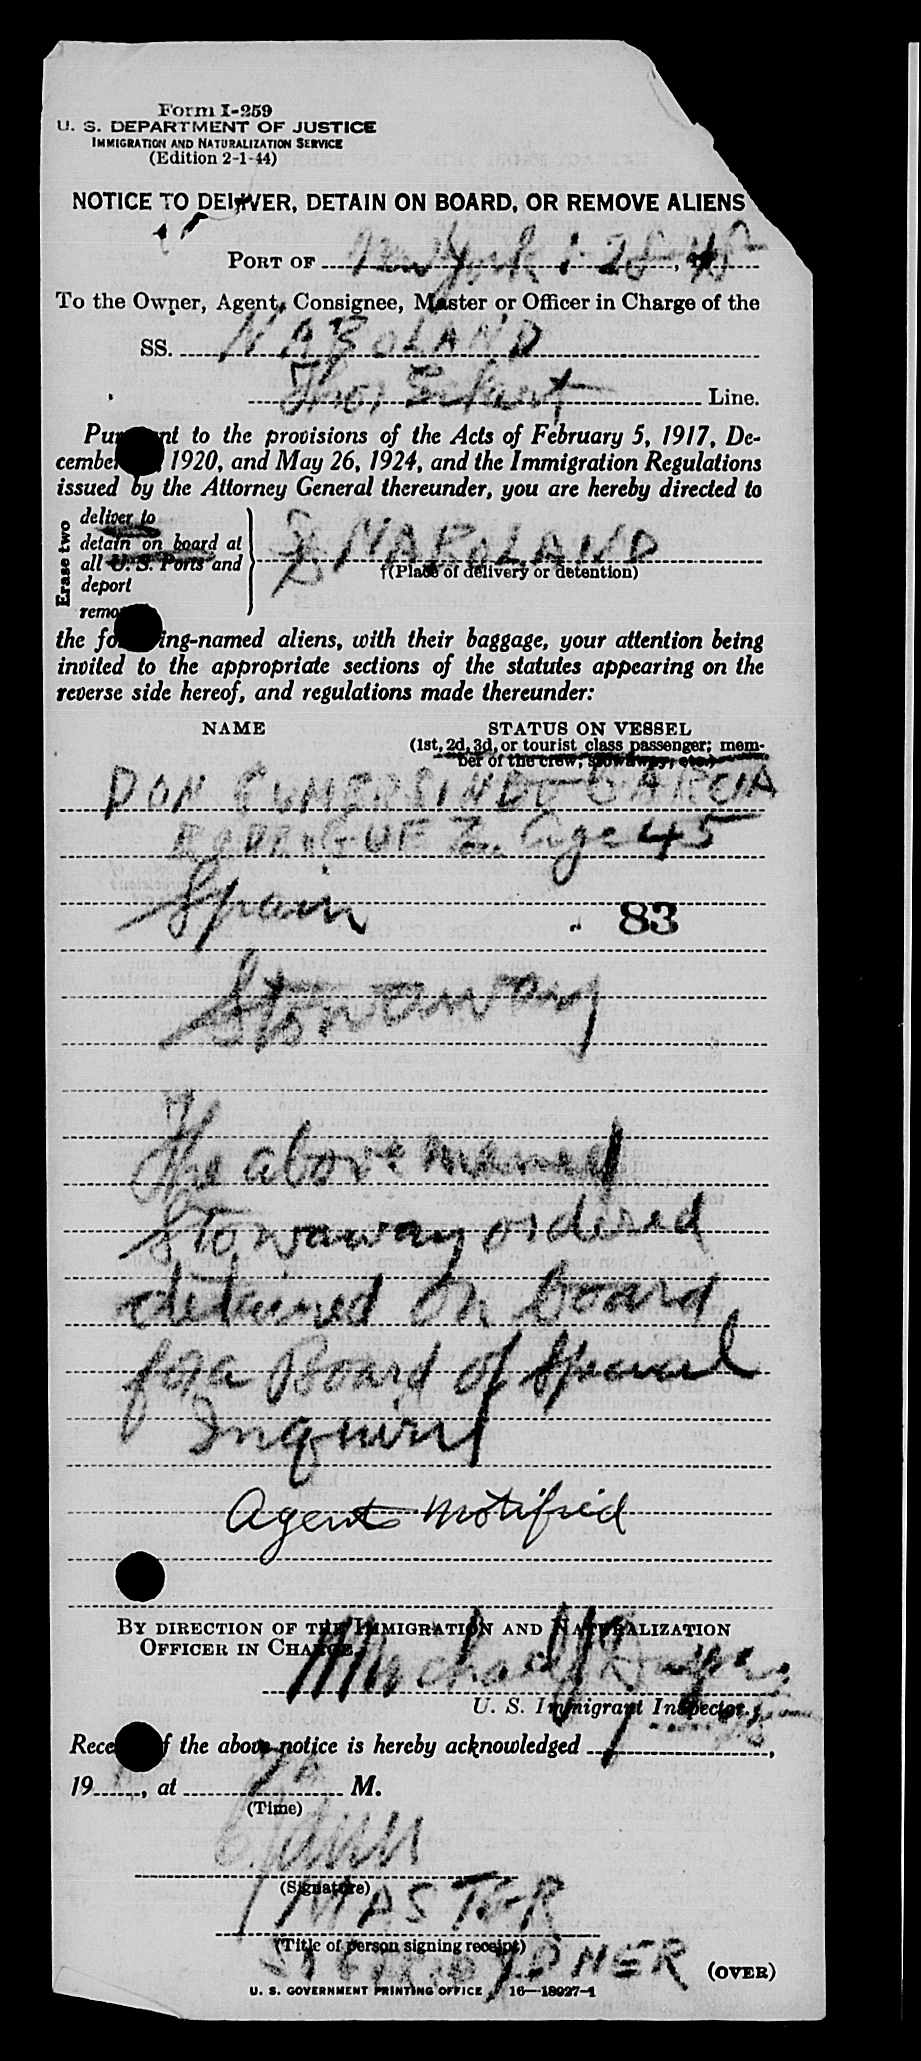 Form I-259
U. S. DEPARTMENT OF JUSTICE
IMMIGRATION AND NATURALIZATION SERVICE
(Edition 2-1-44)
NOTICE TO DELIVER, DETAIN ON BOARD, OR REMOVE ALIENS
PORT OF New York 1-28-45
To the Owner, Agent, Consignee, Master or Officer in Charge of the
SS. NABOLAND
Thor Line.
to the provisions of the Acts of February 5, 1917, De-
1920, and May 26, 1924, and the Immigration Regulations
issued by the Attorney General thereunder, you are hereby directed to
Erase two
deliver to
detain on board at
all U. S. Ports and
deport
NABOLAND
†(Place of delivery or detention)
the ing-named aliens, with their baggage, your attention being
invited to the appropriate sections of the statutes appearing on the
reverse side hereof, and regulations made thereunder:
NAME STATUS ON VESSEL
(1st, 2d, 3d, or tourist class passenger; mem-
ber of the crew; stowaway; etc.)
DON GUMERSINDO GARCIA
RODRIGUEZ. Age 45
Spain 83
Stowaway
The above named
Stowaway ordered
detained on board
for a Board of Special
Inquiry
Agents notified
BY DIRECTION OF THE IMMIGRATION AND NATURALIZATION
OFFICER IN CHARGE.
Michael
U. S. Immigrant Inspector.
of the above notice is hereby acknowledged ,
19 , at M.
(Time)
(Signature)
MASTER
(Title of person signing receipt)
(OVER)
U. S. GOVERNMENT PRINTING OFFICE 16—18927-1